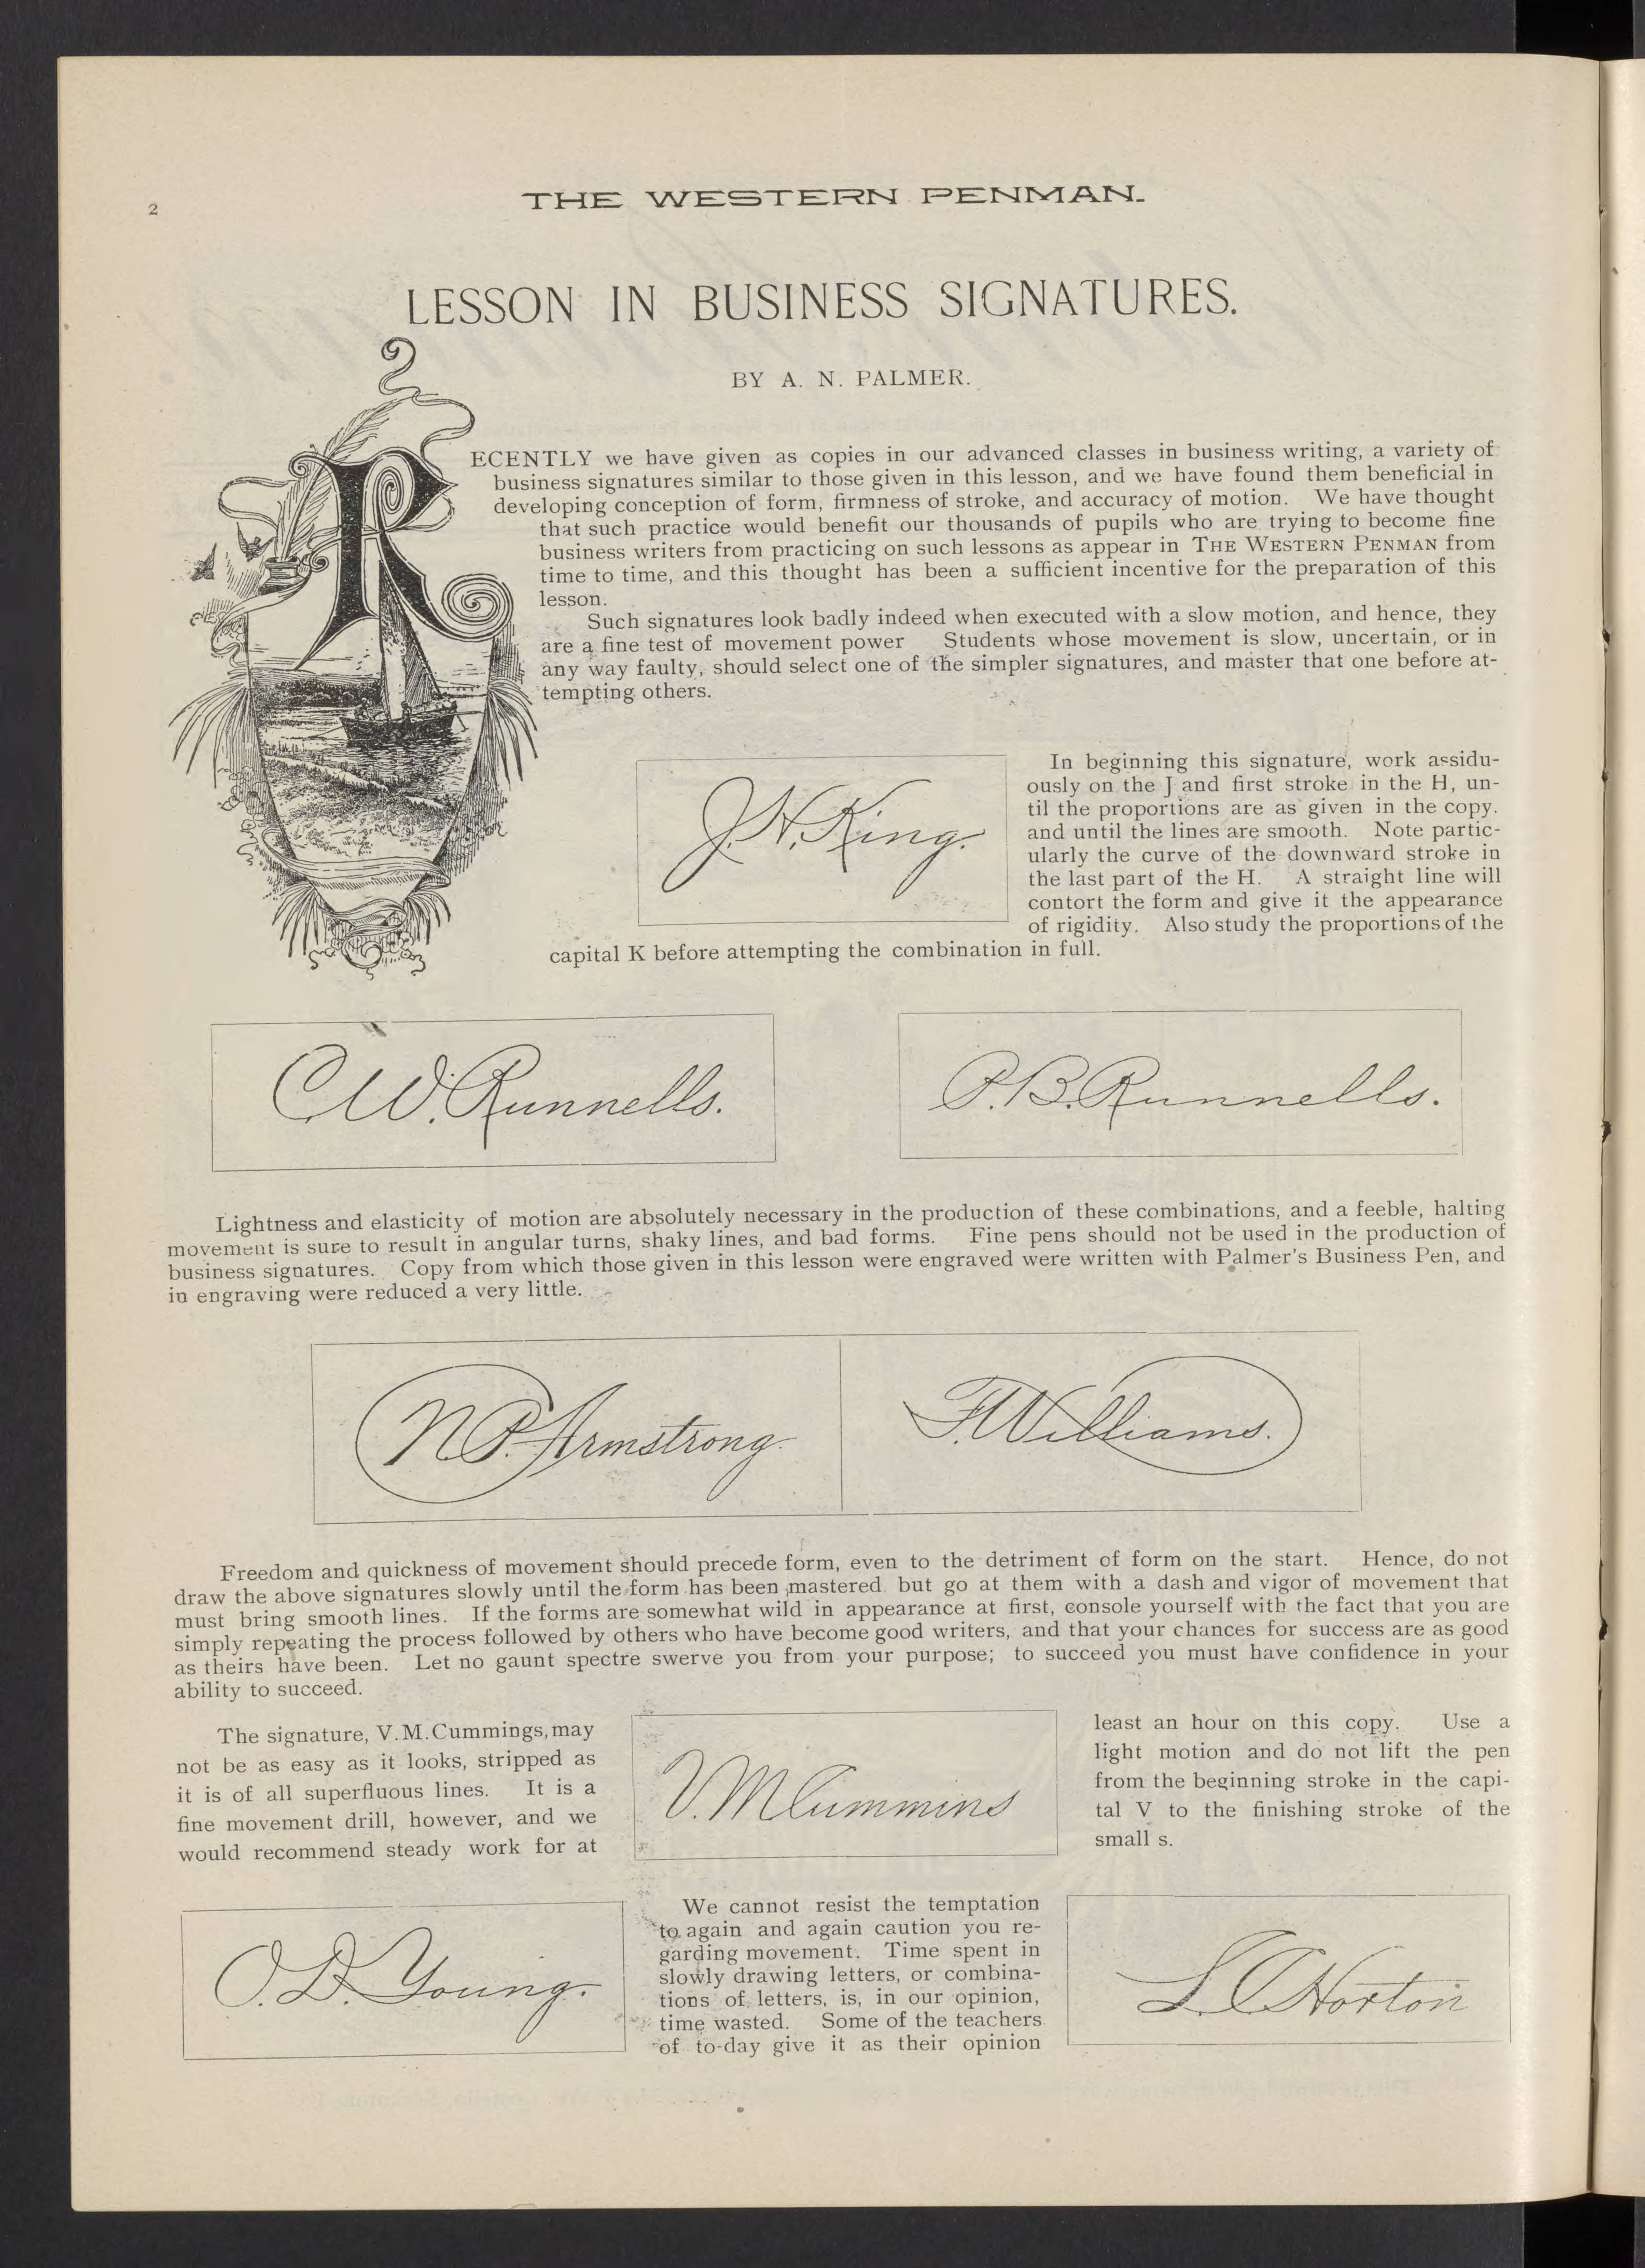 2
THE WESTERN PENMAN.
LESSON IN BUSINESS SIGNATURES.
BY A. N. PALMER.
RECENTLY we have given as copies in our advanced classes in business writing, a variety of
business signatures similar to those given in this lesson, and we have found them beneficial in
developing conception of form, firmness of stroke, and accuracy of motion. We have thought
that such practice would benefit our thousands of pupils who are trying to become fine
business writers from practicing on such lessons as appear in THE WESTERN PENMAN from
time to time, and this thought has been a sufficient incentive for the preparation of this
lesson.
Such signatures look badly indeed when executed with a slow motion, and hence, they
are a fine test of movement power Students whose movement is slow, uncertain, or in
any way faulty, should select one of the simpler signatures, and master that one before at-
tempting others.
J. H. King.
In beginning this signature, work assidu-
ously on the J and first stroke in the H, un-
til the proportions are as given in the copy.
and until the lines are smooth. Note partic-
ularly the curve of the downward stroke in
the last part of the H. A straight line will
contort the form and give it the appearance
of rigidity. Also study the proportions of the
capital K before attempting the combination in full.
C W. Runnells.
P. B. Runnells.
Lightness and elasticity of motion are absolutely necessary in the production of these combinations, and a feeble, halting
movement is sure to result in angular turns, shaky lines, and bad forms. Fine pens should not be used in the production of
business signatures. Copy from which those given in this lesson were engraved were written with Palmer's Business Pen, and
in engraving were reduced a very little.
N. P. Armstrong.
F. Williams.
Freedom and quickness of movement should precede form, even to the detriment of form on the start. Hence, do not
draw the above signatures slowly until the form has been mastered but go at them with a dash and vigor of movement that
must bring smooth lines. If the forms are somewhat wild in appearance at first, console yourself with the fact that you are
simply repeating the process followed by others who have become good writers, and that your chances for success are as good
as theirs have been. Let no gaunt spectre swerve you from your purpose; to succeed you must have confidence in your
ability to succeed.
The signature, V. M. Cummings, may
not be as easy as it looks, stripped as
it is of all superfluous lines. It is a
fine movement drill, however, and we
would recommend steady work for at
V. M Cummins
least an hour on this copy. Use a
light motion and do not lift the pen
from the beginning stroke in the capi-
tal V to the finishing stroke of the
small s.
O. D. Young.
We cannot resist the temptation
to again and again caution you re-
garding movement. Time spent in
slowly drawing letters, or combina-
tions of letters, is, in our opinion,
time wasted. Some of the teachers
of to-day give it as their opinion
L. C Horton